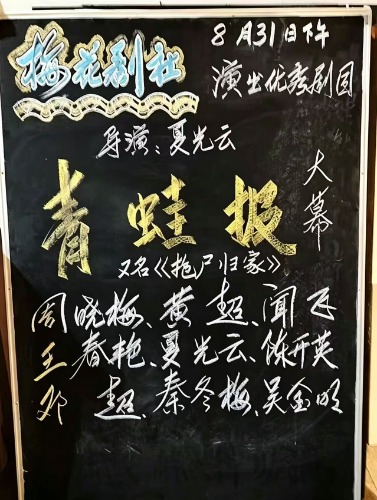 梅花剧社
8月31日下午
演出优秀剧目
导演:夏光云
大幕
青蛙报
又名《拖尸归家》
周晓梅、黄超、闻飞
王春艳、夏光云、陈开英
邓超、秦冬梅、吴金明